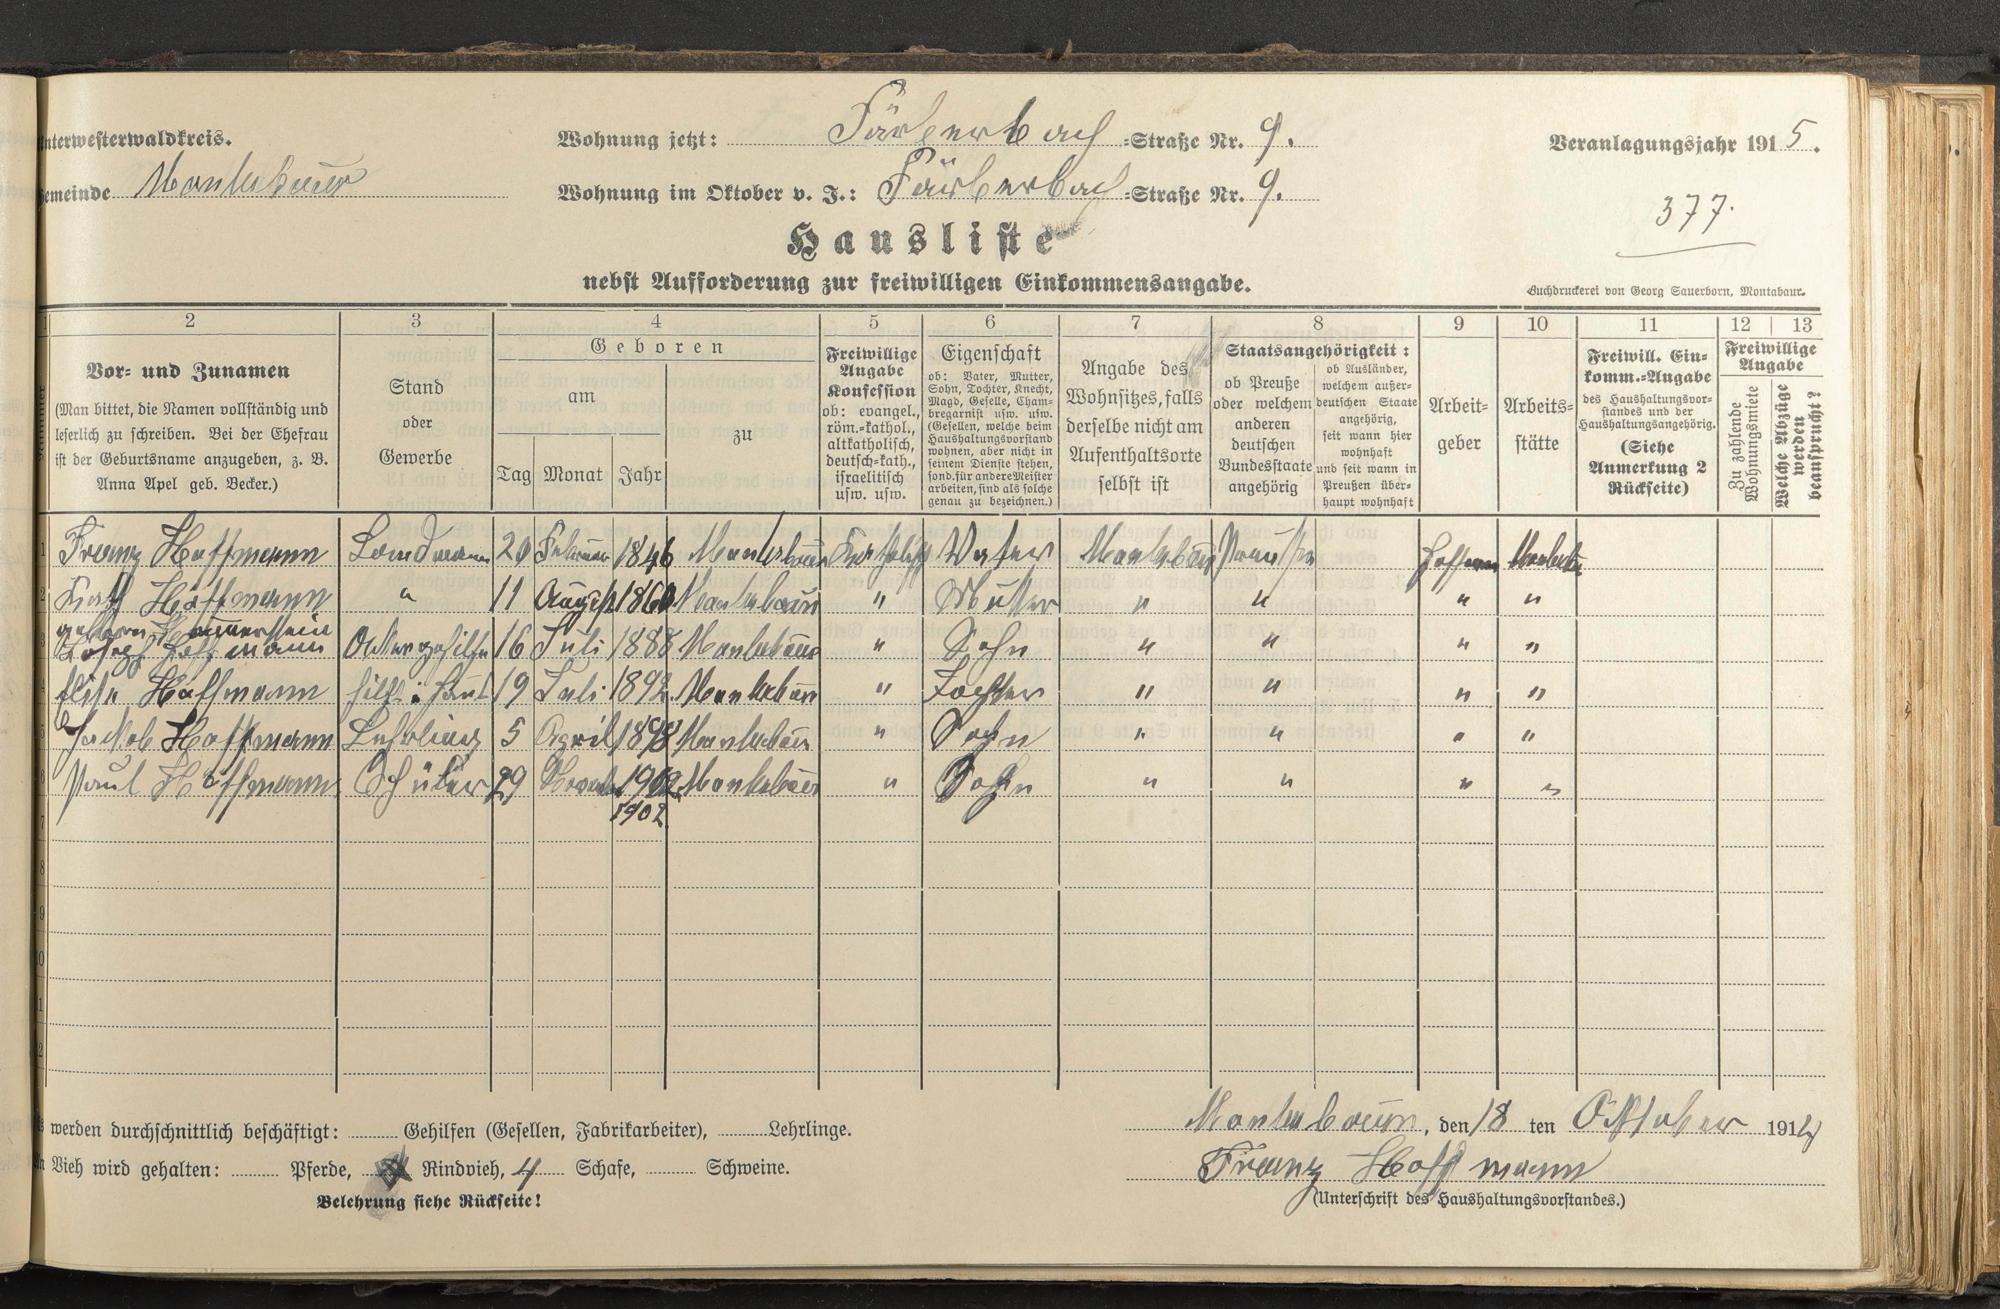 Unterwesterwaldkreis.
Gemeinde Montabaur
Wohnung jetzt: Färberbach -Straße Nr. 9.
Wohnung im Oktober v. J.: Färberbach -Straße Nr. 9.
Veranlagungsjahr 1915.
377.
Hausliste
nebst Aufforderung zur freiwilligen Einkommensangabe.
Buchdruckerei von Georg Sauerborn, Montabaur.
1 2 3 4 5 6 7 8 9 10 11 12 13
Nummer
Vor- und Zunamen
(Man bittet, die Namen vollständig und
leserlich zu schreiben. Bei der Ehefrau
ist der Geburtsname anzugeben, z. B.
Anna Apel geb. Becker.)
Stand
oder
Gewerbe
Geboren
am
Tag Monat Jahr
zu
Freiwillige
Angabe
Konfession
ob: evangel.,
röm.-kathol.,
altkatholisch,
deutsch-kath.,
israelitisch
usw. usw.
Eigenschaft
ob: Vater, Mutter,
Sohn, Tochter, Knecht,
Magd, Geselle, Cham-
bregarnist usw. usw.
(Gesellen, welche beim
Haushaltungsvorstand
wohnen, aber nicht in
seinem Dienste stehen,
sond. für andere Meister
arbeiten, sind als solche
genau zu bezeichnen.)
Angabe des
Wohnsitzes, falls
derselbe nicht am
Aufenthaltsorte
selbst ist
Staatsangehörigkeit:
ob Preuße
oder welchem
anderen
deutschen
Bundesstaate
angehörig
ob Ausländer,
welchem außer-
deutschen Staate
angehörig,
seit wann hier
wohnhaft
und seit wann in
Preußen über-
haupt wohnhaft
Arbeit-
geber
Arbeits-
stätte
Freiwill. Ein-
komm.-Angabe
des Haushaltungsvor-
standes und der
Haushaltungsangehörig.
(Siehe
Anmerkung 2
Rückseite)
Freiwillige
Angabe
Zu zahlende
Wohnungsmiete
Welche Abzüge
werden
beansprucht?
1 Franz Hoffmann Landmann 20 Februar 1846 Montabaur Katholisch Vater Montabaur Preuße Hoffmann Montabaur
2 Kath Hoffmann " 11 August 1860 Montabaur " Mutter " " " "
geborn Hammerstein
3 Joseph Hoffmann Ackergehilfe 16 Juli 1888 Montabaur " Sohn " " " "
4 Elise Hoffmann 19 Juli 1892 Montabaur " Tochter " " " "
5 Jackob Hoffmann Lehrling 5 April 1898 Montabaur " Sohn " " " "
6 Paul Hoffmann Schüler 29 1902 Montabaur " Sohn " " " "
1902
7
8
9
10
11
12
werden durchschnittlich beschäftigt: Gehilfen (Gesellen, Fabrikarbeiter), Lehrlinge.
Vieh wird gehalten: Pferde, Rindvieh, 4 Schafe, Schweine.
Belehrung siehe Rückseite!
Montabaur, den 18 ten Oktober 1914
Franz Hoffmann
(Unterschrift des Haushaltungsvorstandes.)